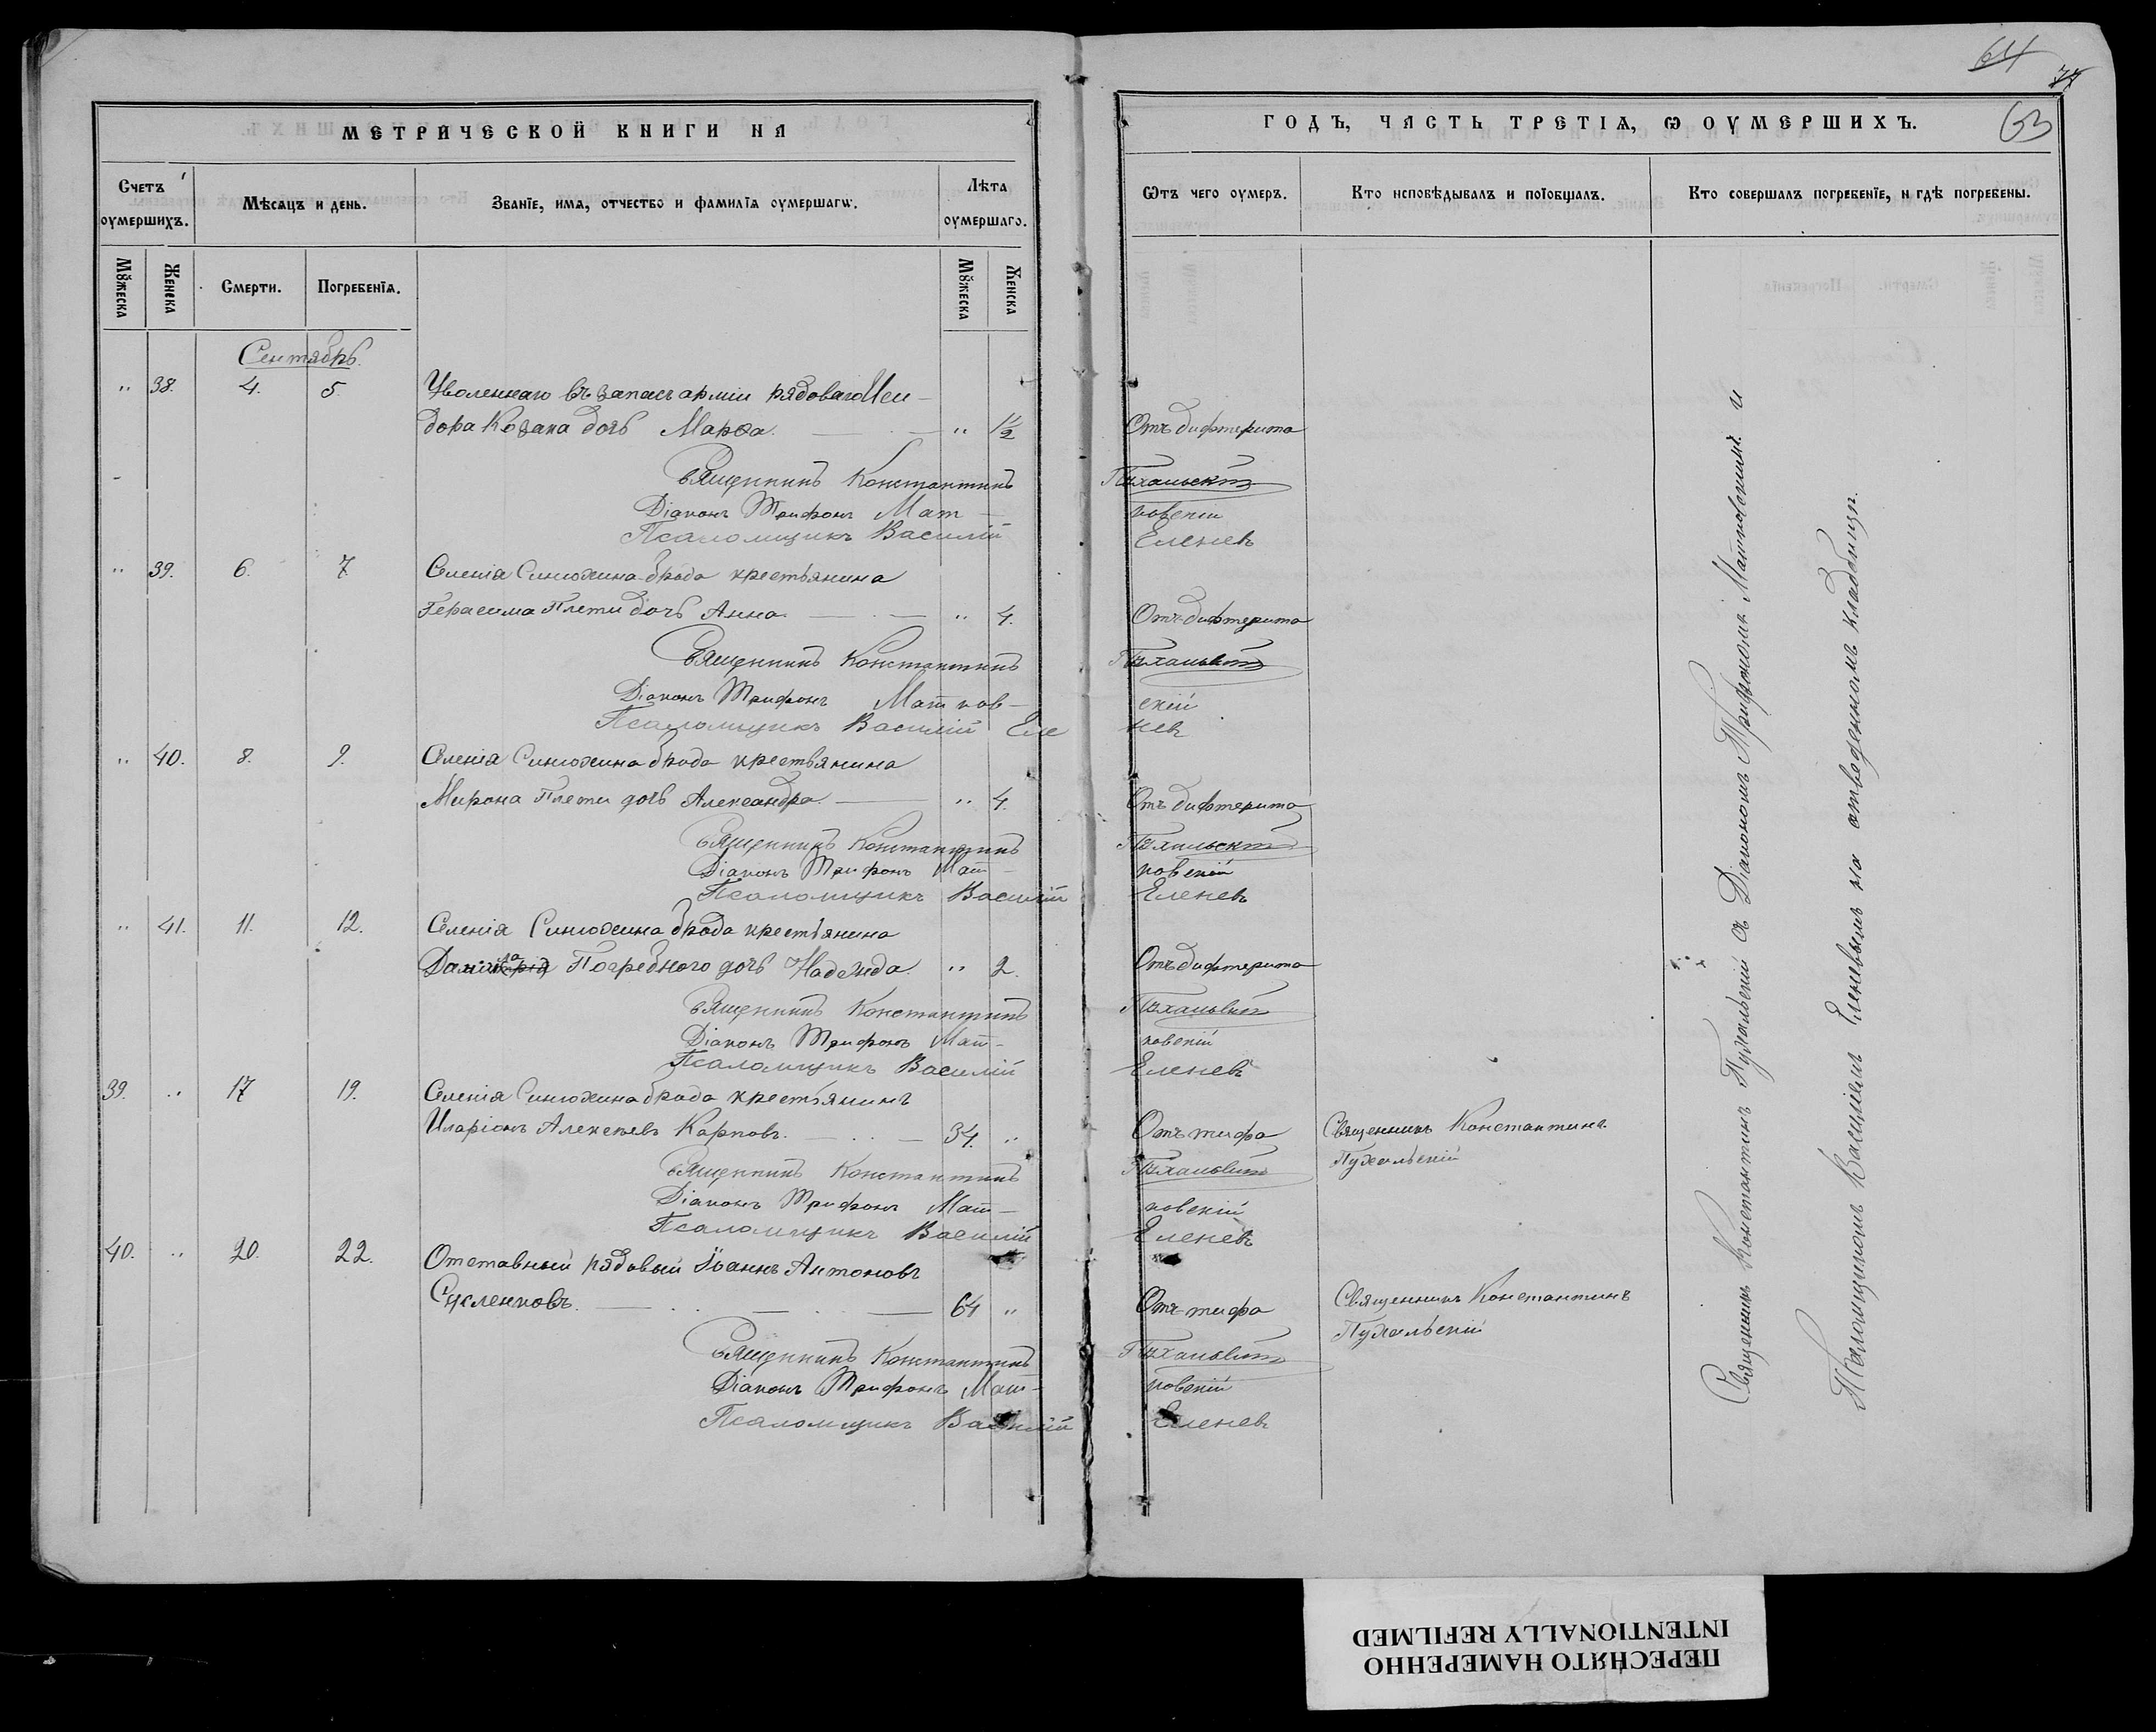 64
77
63
МЕТРИЧЕСКОЙ КНИГИ НА
Счетъ оумершихъ.
Мѣсяцъ и день.
Званїе, имя, отчество и фамилїя оумершагѡ.
Лѣта оумершаго.
Мꙋжеска
Женска
Смерти.
Погребенїя.
Мꙋжеска
Женска
ГОДЪ, ЧАСТЬ ТРЕТІѦ, Ѡ ОУМЕРШИХЪ.
Ѿтъ чего оумеръ.
Кто исповѣдывалъ и прїобщалъ.
Кто совершалъ погребенїе, и гдѣ погребены.
Сентябрь.
" 38. 4. 5. Уволеннаго въ запасъ арміи рядоваго Иси-
дора Козака дочь Марѳа. " 1½ Отъ дифтерита
Священникъ Константинъ Пухальскій
Діаконъ Трифонъ Мат-ковскій
Псаломщикъ Василій Еленевъ
" 39. 6. 7. Селенія Синюхина-брода крестьянина
Герасима Плети дочь Анна. " 4. Отъ дифтерита
Священникъ Константинъ Пухальскій
Діаконъ Трифонъ Матков-скій
Псаломщикъ Василій Еле нев
" 40. 8. 9. Селенія Синюхина брода крестьянина
Мирона Плети дочь Александра. " 4. Отъ дифтерита
Священникъ Константинъ Пухальскій
Діаконъ Трифонъ Мат-ковскій
Псаломщикъ Василій Еленевъ
" 41. 11. 12. Селенія Синюхина брода крестьянина
Погребного дочь Надежда. " 2. Отъ дифтерита
Священникъ Константинъ Пухальскій
Діаконъ Трифонъ Мат-ковскій
Псаломщикъ Василій Еленевъ
39. " 17 19. Селенія Синюхина брода крестьянинъ
Иларіонъ Алексѣевъ Карповъ. 34. " Отъ тифа Священникъ Константинъ
Пухальскій
Священникъ Константинъ Пухальскій
Діаконъ Трифонъ Мат-ковскій
Псаломщикъ Василій Еленевъ
40. " 20. 22. Отставный рядовый Іоаннъ Антоновъ
64 " Отъ тифа Священникъ Константинъ
Пухальскій
Священникъ Константинъ Пухальскій
Діаконъ Трифонъ Мат-ковскій
Псаломщикъ Василій Еленевъ
Священникъ Константинъ Пухальскій съ Діакономъ Трифономъ Матковскимъ и
Псаломщикомъ Василіемъ Еленевымъ на отведенномъ кладбищѣ.
ПЕРЕСНЯТО НАМЕРЕННО
INTENTIONALLY REFILMED